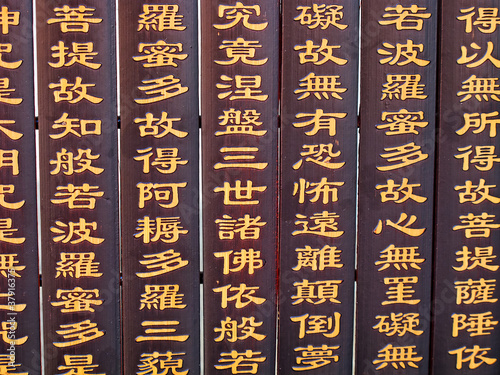 得以無所得故菩提薩陲依
若波羅蜜多故心無罣礙無
礙故無有恐怖遠離顛倒夢
究竟涅盤三世諸佛依般若
羅蜜多故得阿耨多羅三藐
菩提故知般若波羅蜜多是
神呪是大明呪是無